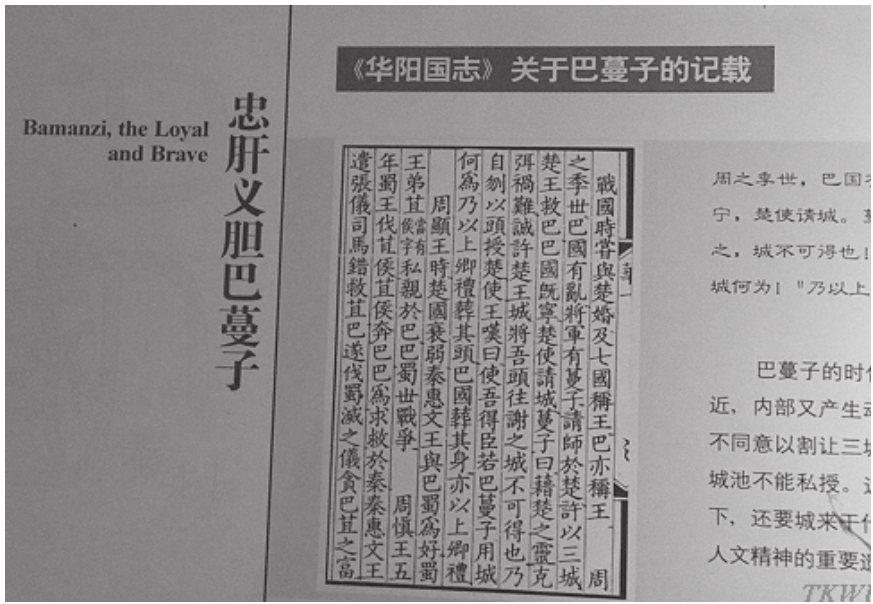 《华阳国志》关于巴蔓子的记载
Bamanzi, the Loyal
and Brave
忠肝义胆巴蔓子
戰國時嘗與楚婚及七國稱王巴亦稱王 周
之季世巴國有亂將軍有蔓子請師於楚許以三城
楚王救巴巴國既寧楚使請城蔓子曰藉楚之靈克
弭禍難誠許楚王城將吾頭往謝之城不可得也乃
自刎以頭授楚使王嘆曰使吾得臣若巴蔓子用城
何爲乃以上卿禮葬其頭巴國葬其身亦以上卿禮
周顯王時楚國衰弱秦惠文王與巴蜀爲好蜀
王弟苴當有侯字私親於巴巴蜀世戰爭 周慎王五
年蜀王伐苴侯苴侯奔巴巴爲求救於秦秦惠文王
遣張儀司馬錯救苴巴遂伐蜀滅之儀貪巴苴之富
周之季世，巴国
宁，楚使请城。
之，城不可得也！
城何为！"乃以上
巴蔓子的时
近，内部又产生
不同意以割让三
城池不能私授。
下，还要城来干
人文精神的重要
TKWU